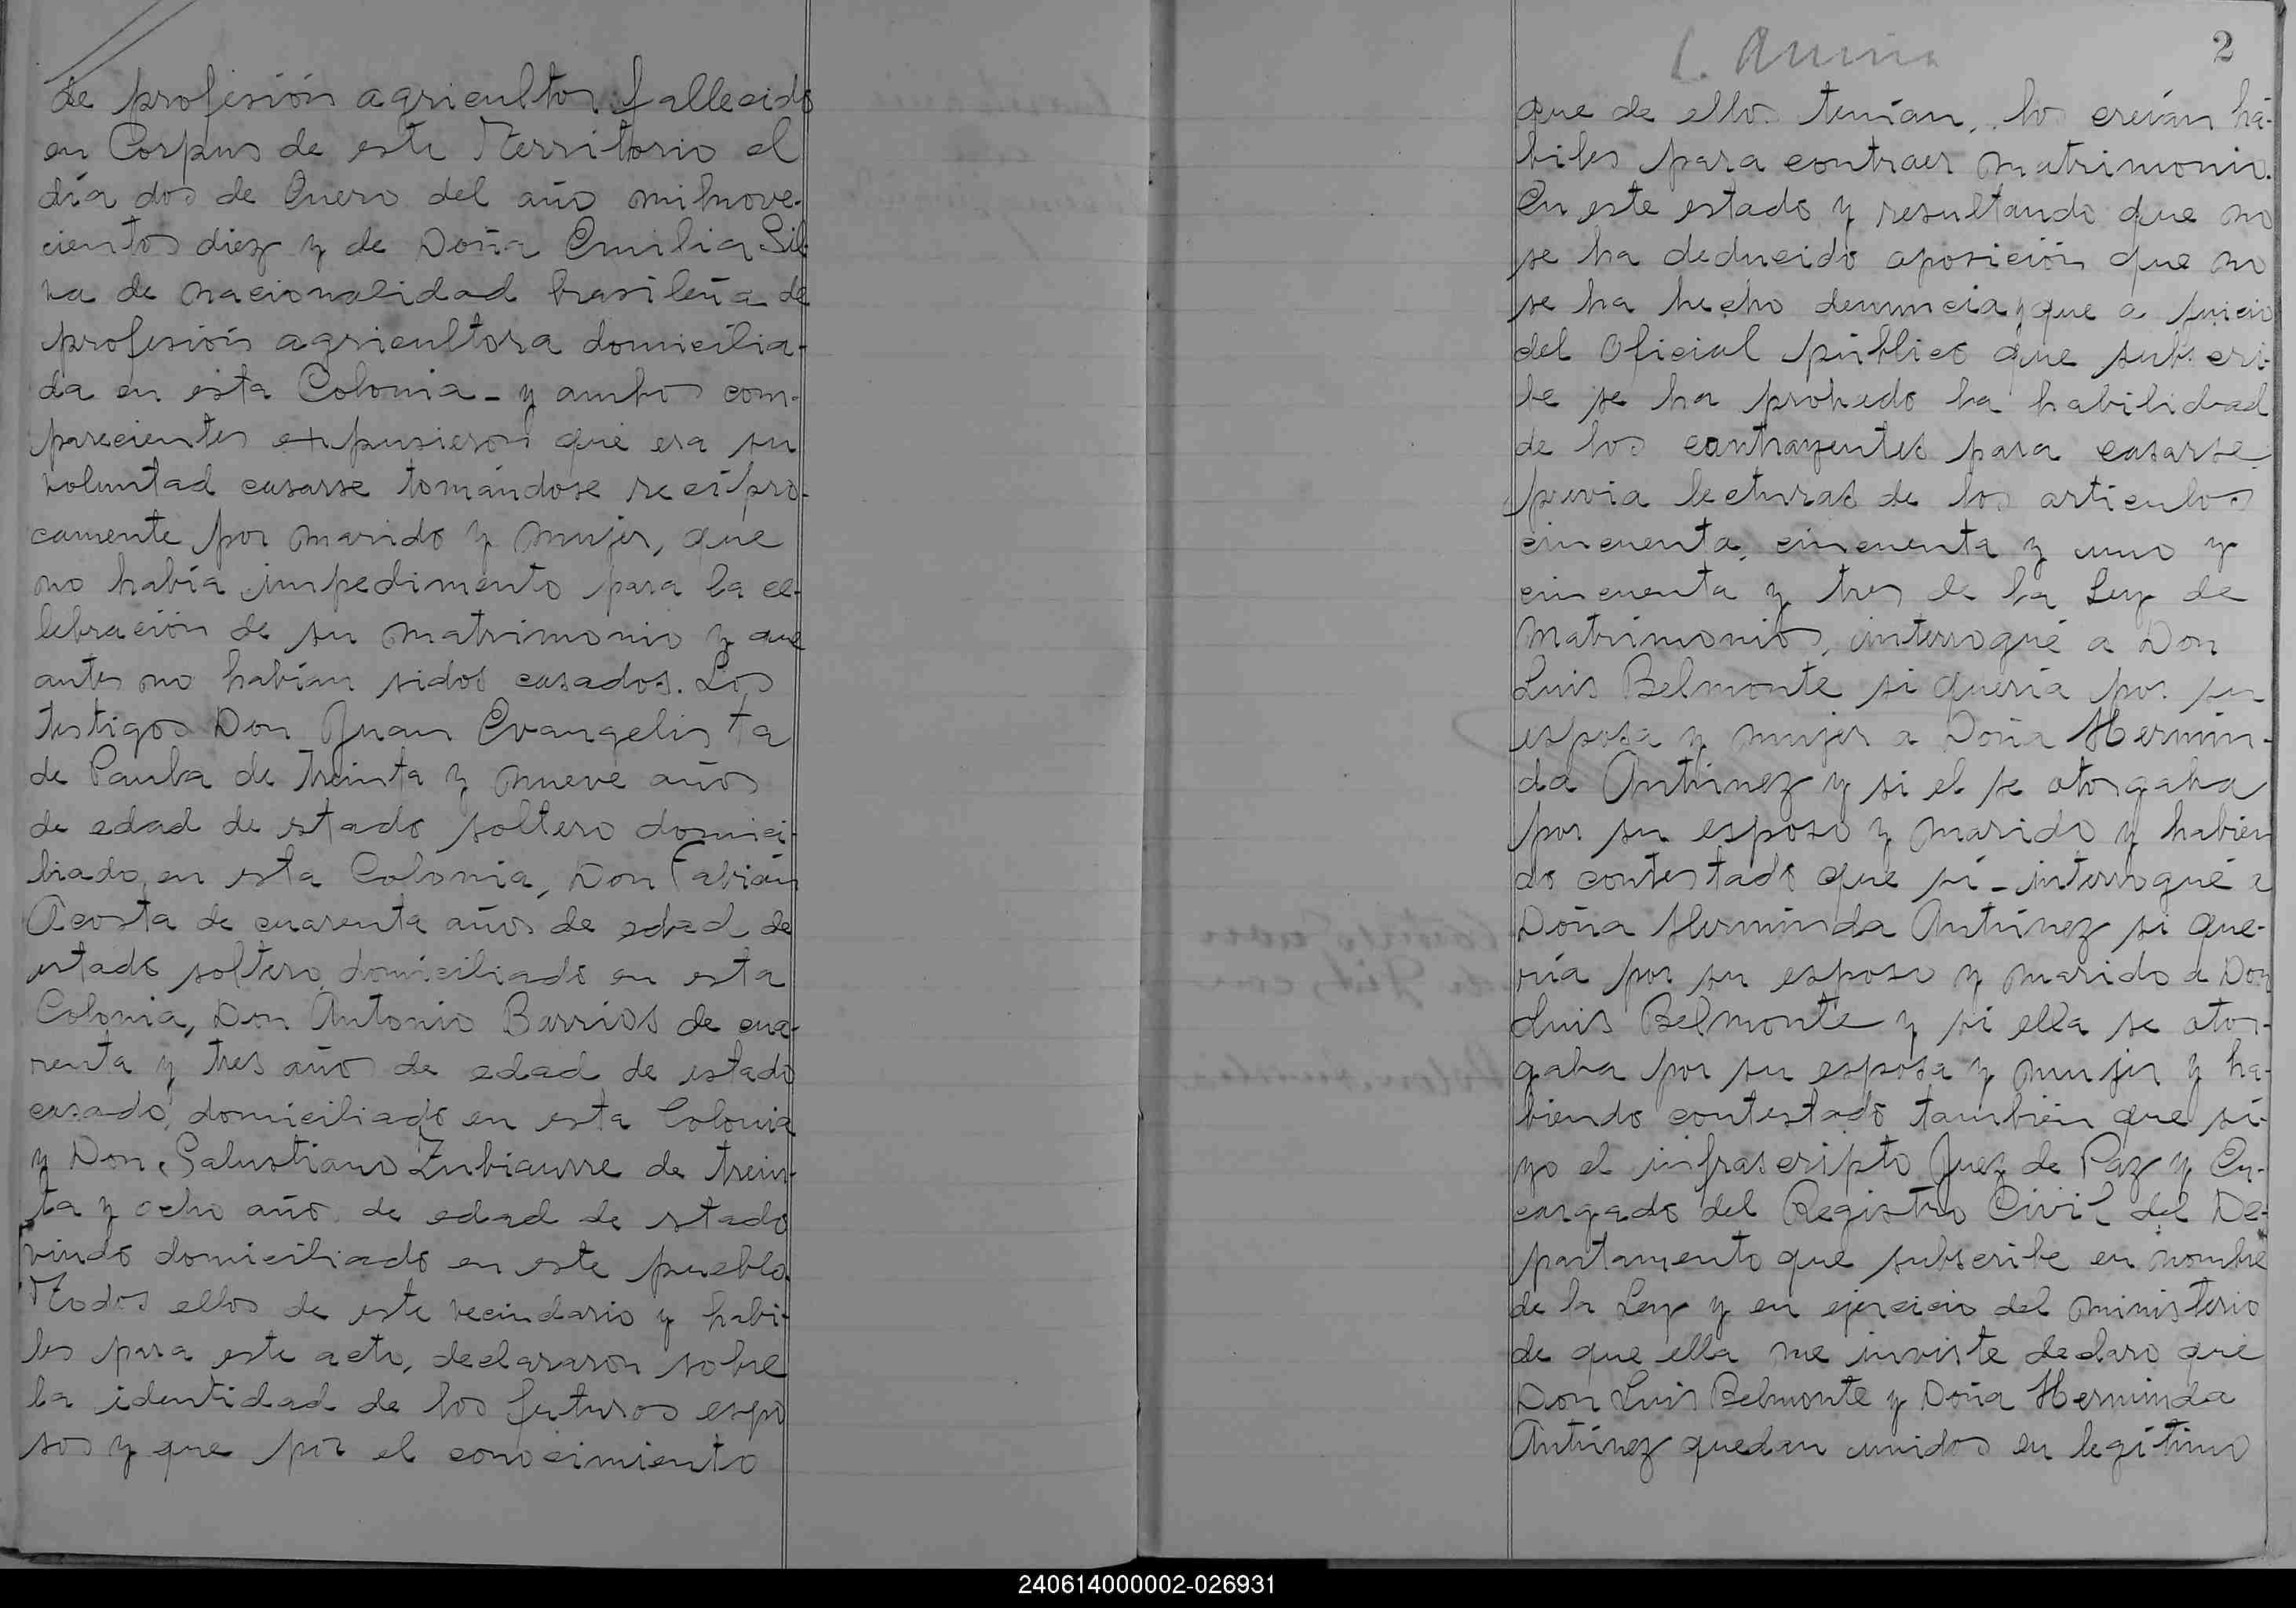 de profesión agricultor fallecido
en Corpus de este Territorio el
día dos de Enero del año milnove-
cientos diez y de Doña Emilia Sil-
va de nacionalidad brasileña de
profesión agricultora domicilia-
da en esta Colonia - y ambos com-
parecientes expusieron que era su
voluntad casarse tomándose recípro-
camente por marido y mujer, que
no había impedimento para la ce-
lebración de su matrimonio y que
antes no habían sidos casados. Los
testigos Don Juan Evangelista
de Paula de treinta y nueve años
de edad de estado soltero domici-
liado en esta Colonia, Don Fabián
Acosta de cuarenta años de edad de
estado soltero domiciliado en esta
Colonia, Don Antonio Barrios de cua-
renta y tres años de edad de estado
casado, domiciliado en esta Colonia
y Don Salustiano Zubiaurre de trein-
ta y ocho años de edad de stado
viudo domiciliado en este pueblo.
Todos ellos de este vecindario y habi-
les para este acto, declararon sobre
la identidad de los futuros espo
sos y que por el conocimiento
2
que de ellos tenían, los creían há-
biles para contraer matrimonio.
En este estado y resultando que no
se ha deducido aposición que no
se ha hecho denuncia y que a juicio
del Oficial público que subscri-
be se ha probado la habilidad
de los contrayentes para casarse
previa lecturas de los articulos
cincuenta, cincuenta y uno y
cincuenta y tres de la Ley de
Matrimonios, interrogué a Don
Luis Belmonte si quería por su
esposa y mujer a Doña Hermin-
da Antúnez y si el se otorgaba
por su esposo y marido y habien
do contestado que sí - interrogué a
Doña Herminda Antúnez si que-
ría por su esposo y marido a Don
Luis Belmonte y si ella se otor-
gaba por su esposa y mujer y ha-
biendo contestado también que sí-
yo el infrascripto Juez de Paz y En-
cargado del Registro Civil del De-
partamento que subscribe en nombre
de la Ley y en ejercicio del ministerio
de que ella me inviste declaro que
Don Luis Belmonte y Doña Herminda
Antúnez quedan unidos en legítimo
240614000002-026931